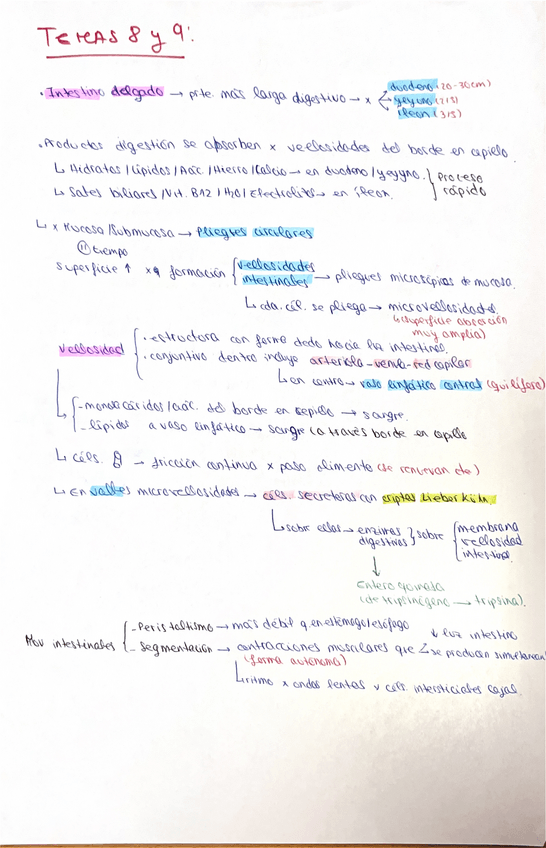 TEMAS 8 y 9:
· Intestino delgado → pte. más larga digestivo → x duodeno (20-30cm)
yeyuno (2/5)
íleon (3/5)
· Productos digestión se absorben x vellosidades del borde en cepillo.
↳ Hidratos / Lípidos / Aác. / Hierro / Calcio → en duodeno / yeyuno. } Proceso rápido
↳ Sales biliares / Vit. B12 / H2O / Electrolitos → en íleon.
↳ x Mucosa/Submucosa → pliegues circulares
tiempo
superficie ↑ xq formación { vellosidades intestinales → pliegues microscópicos de mucosa.
↳ cda. cél. se pliega → microvellosidad.
↳ (superficie absorción muy amplia)
vellosidad { · estructura con forma dedo hacia luz intestinal.
· conjuntivo dentro incluye arteriola - venula - red capilar
↳ en centro → vaso linfático central (quilífero)
↳ { - monosacáridos / aác. del borde en cepillo → sangre.
- lípidos a vaso linfático → sangre (a través borde en cepillo
↳ céls. → fricción continua x paso alimento (se renuevan cte)
↳ En valles microvellosidades → céls. secretoras con criptas Lieberkühn.
↳ sobre ellas → enzimas digestivas } sobre { membrana vellosidad intestinal
↓
Enteroquinasa
(de tripsinógeno → tripsina).
Mov intestinales { - Peristaltismo → más débil q en estómago/esófago
↓ luz intestino
- Segmentación → contracciones musculares que se producen simultánea
(forma autónoma)
↳ ritmo x ondas lentas y céls. intersticiales Cajal.